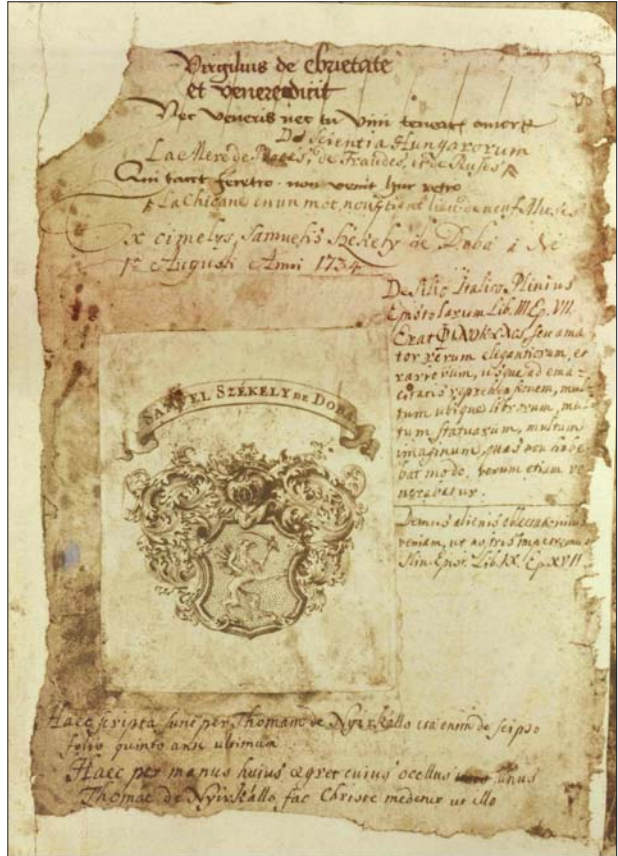 Virgilius de ebrietate
et venere dicit
Nec veneris nec tu vini tenearis amore
De scientia Hungarorum
La Mere de Proces, de Fraudes, et de Ruses
Qui tacet feretro non venit huc retro
La Chicane en un mot, nous tient lieu de neuf Muses
Ex cimelys Samuelis Székely de Doba
1ª Augusti Anni 1734
De Silio Italico Plinius
Epistolarum Lib. III Ep. VII.
Erat ΦΙΛΟΚΑΛΟς, seu ama
tor rerum elegantiorum, et
rariorum, usque ad ema-
citatis reprehensionem, mul-
tum ubique librorum, mul-
tum statuarum, multum
imaginum, quas non habe
bat modo, verum etiam ve
nerabatur.
Demus alienis oblectationibus
veniam, ut nostris impetremus
Plin. Epist. Lib. IX. Ep. XVII
SAMUEL SZÉKELY DE DOBA
Haec scripta sunt per Thomam de Nyirkállo ita enim de seipso
folio quinto ante ultimum
Haec per manus huius egret cuius ocellus unus
Thomae de Nyirkállo fac Christe medenur ut illo